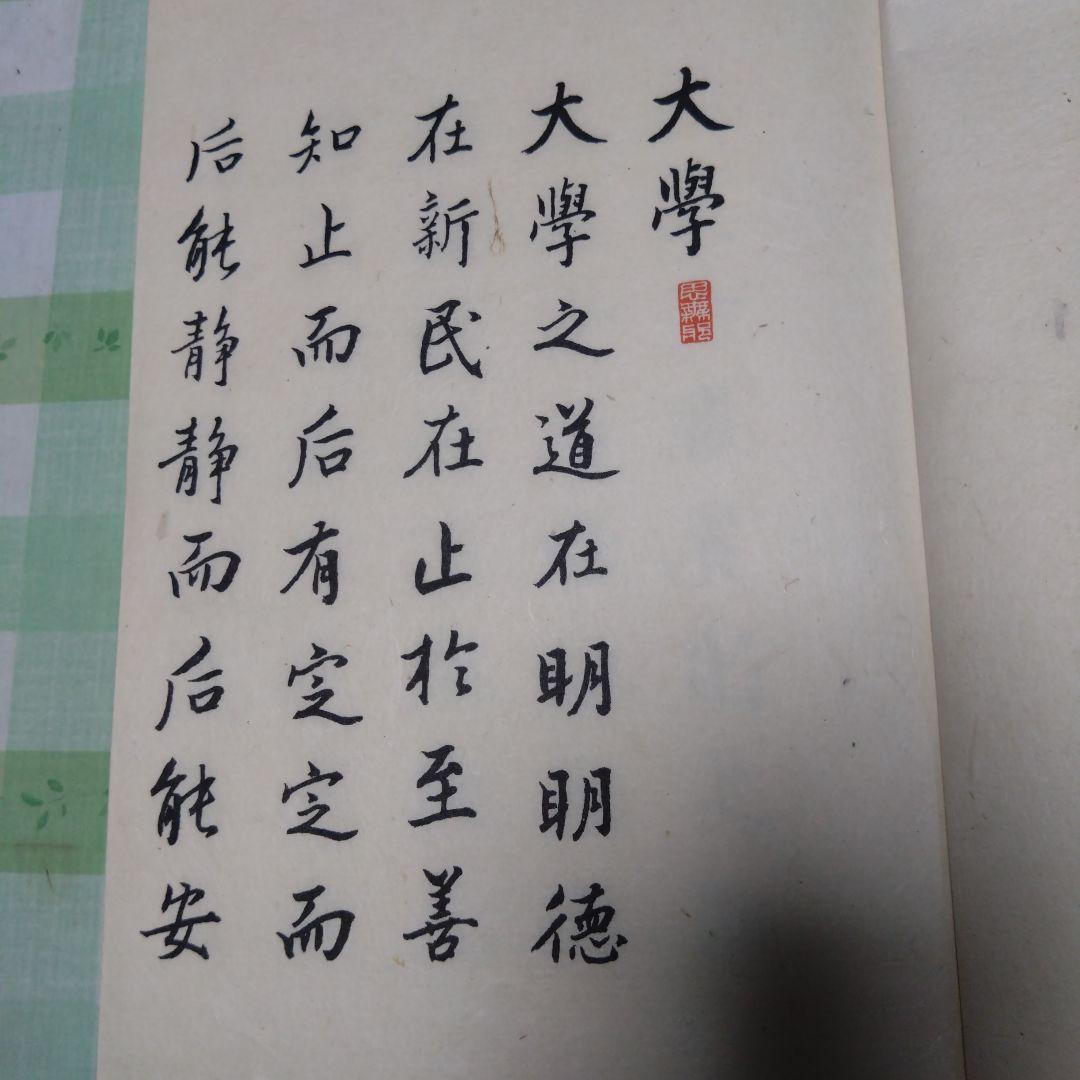 大學
思無邪
大學之道在明明德
在新民在止於至善
知止而后有定定而
后能静静而后能安